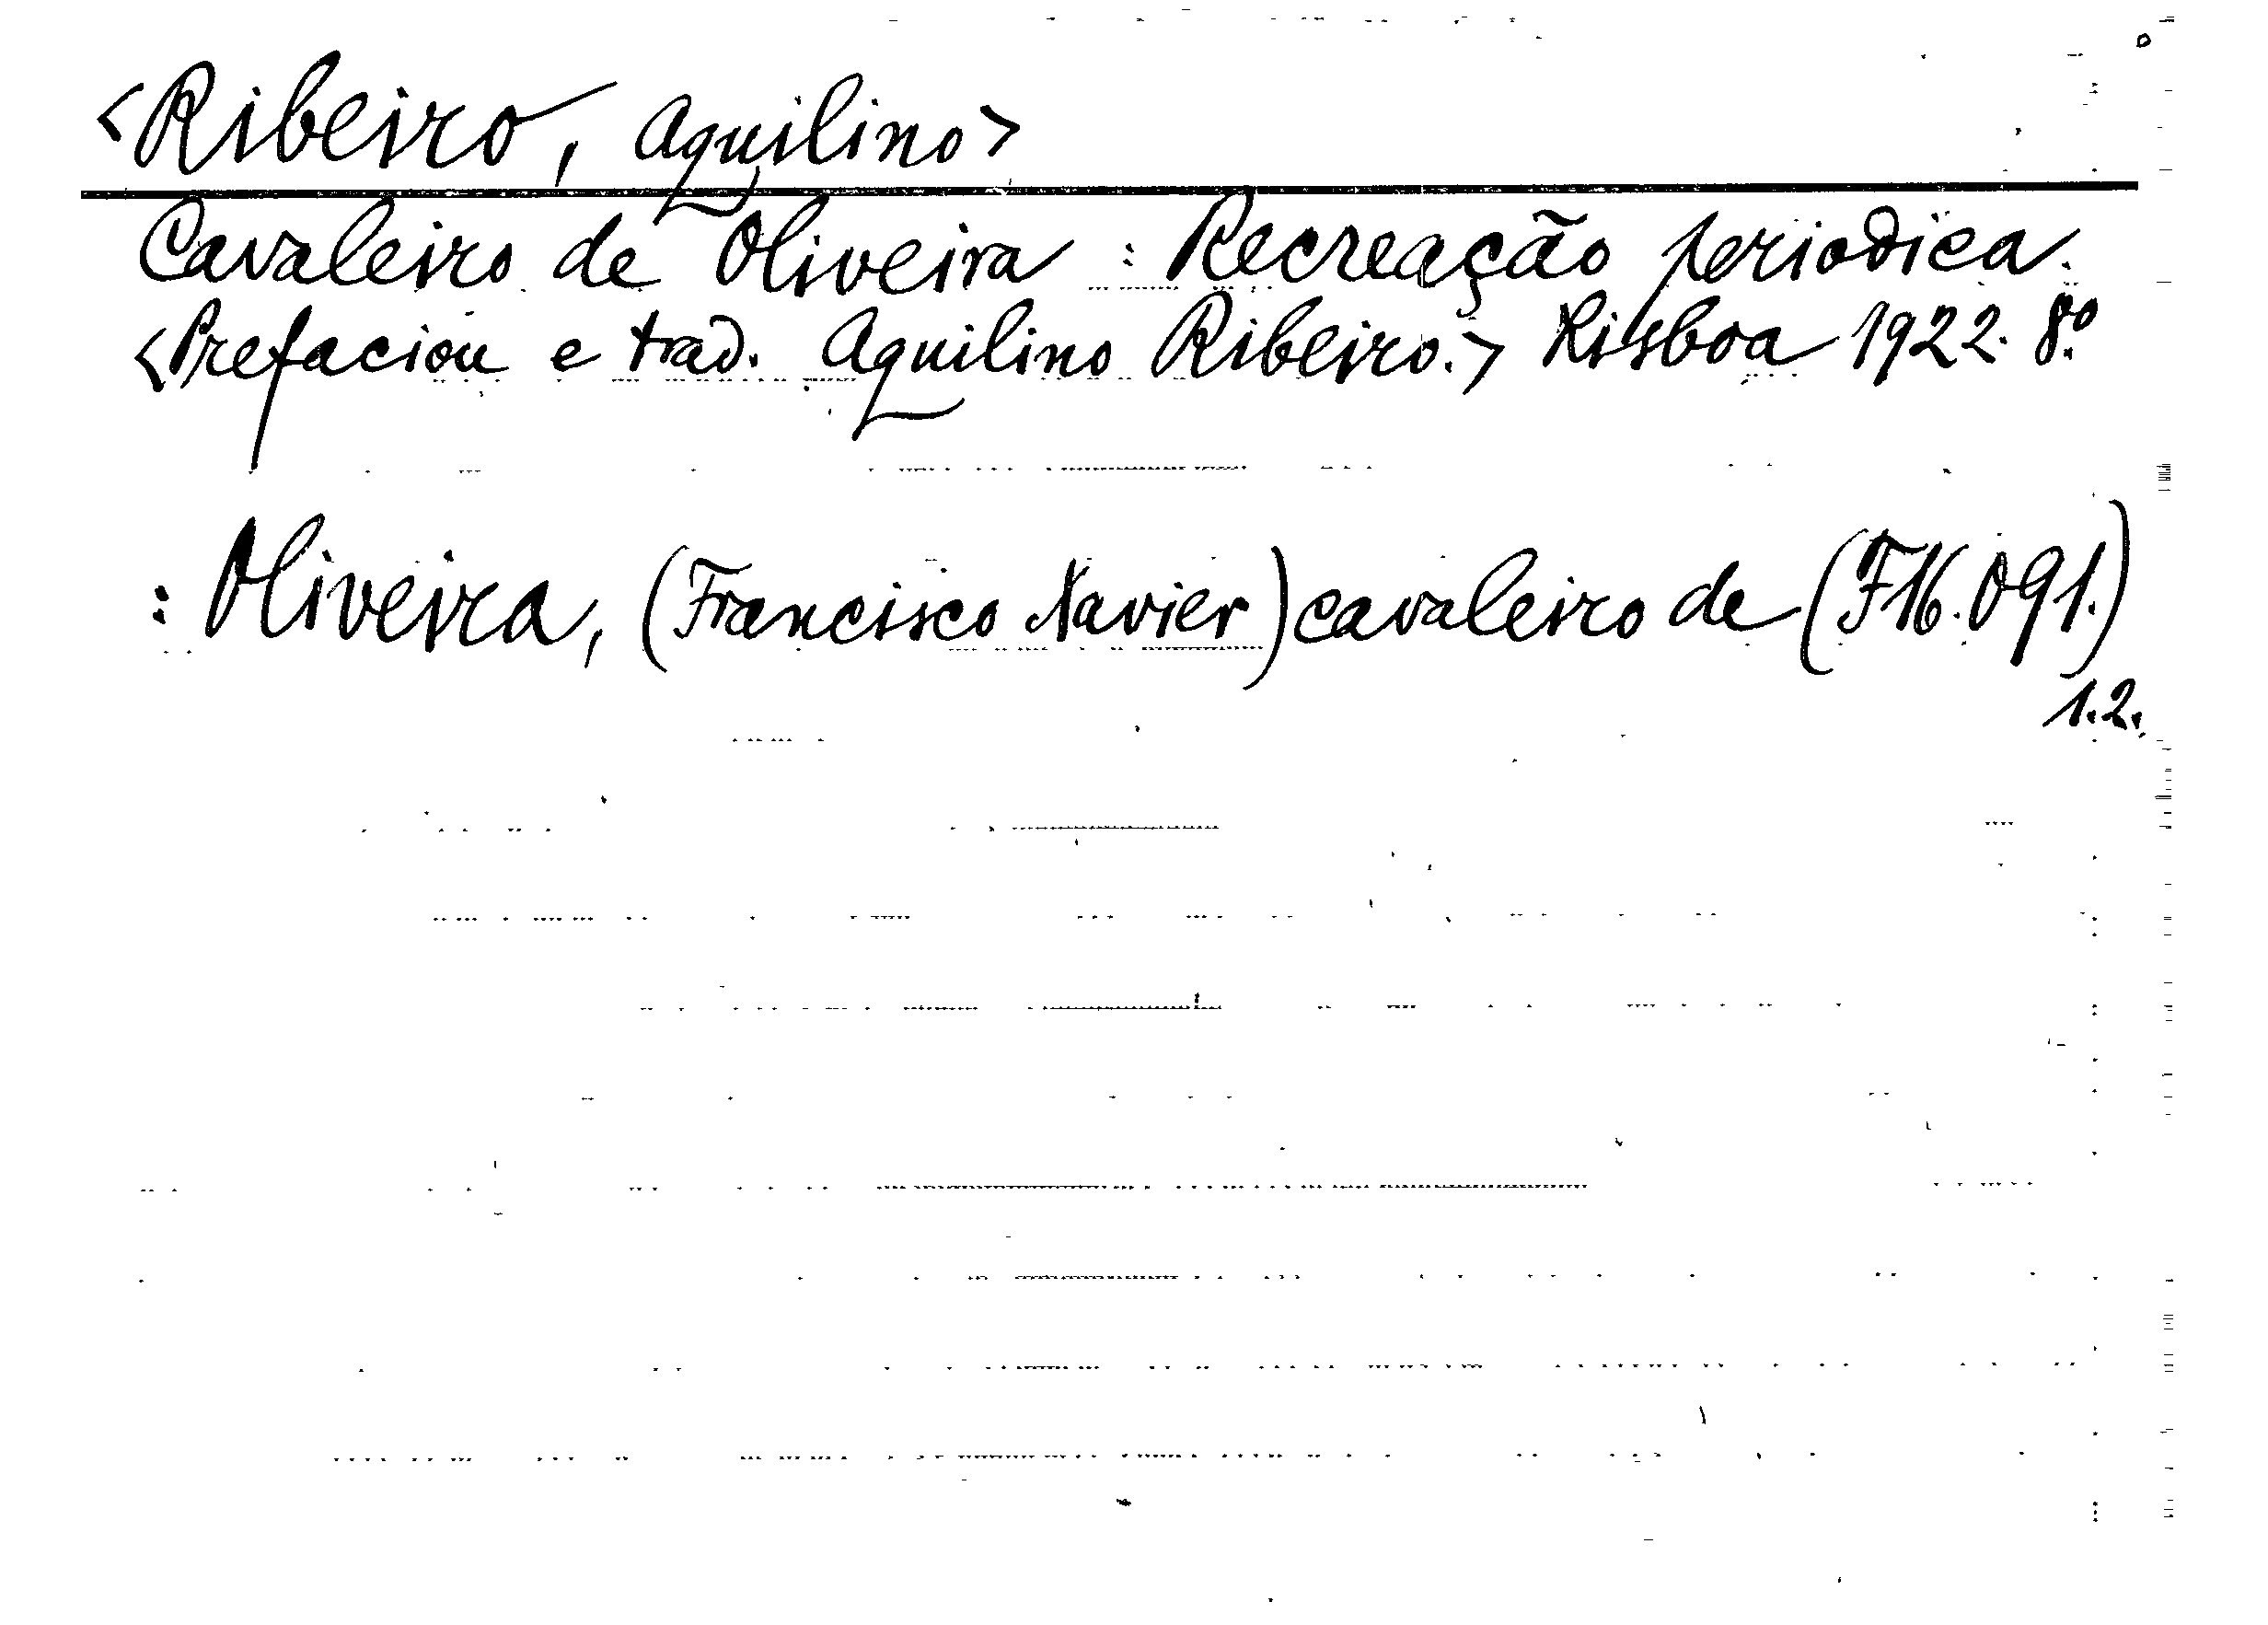 <Ribeiro, Aquilino>
Cavaleiro de Oliveira : Recreação periodica.
<Prefaciou e trad. Aquilino Ribeiro.> Lisboa 1922. 8.º
: Oliveira, (Francisco Xavier) cavaleiro de (F16.091.)
1.2.